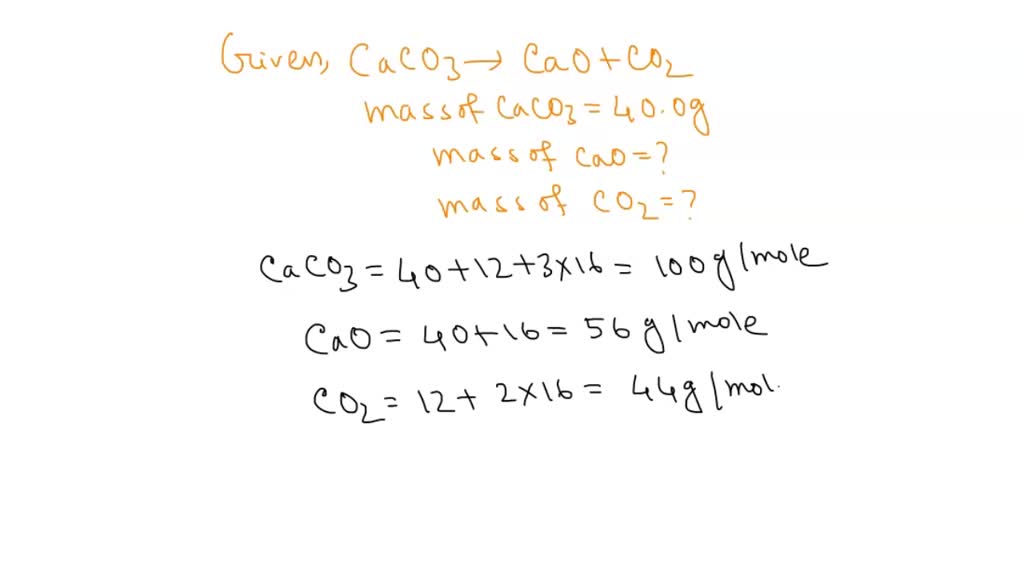 Given, CaCO3 → CaO + CO2
mass of CaCO3 = 40.0g
mass of CaO = ?
mass of CO2 = ?
CaCO3 = 40+12+3×16 = 100g/mole
CaO = 40+16 = 56g/mole
CO2 = 12+ 2×16 = 44g/mol.